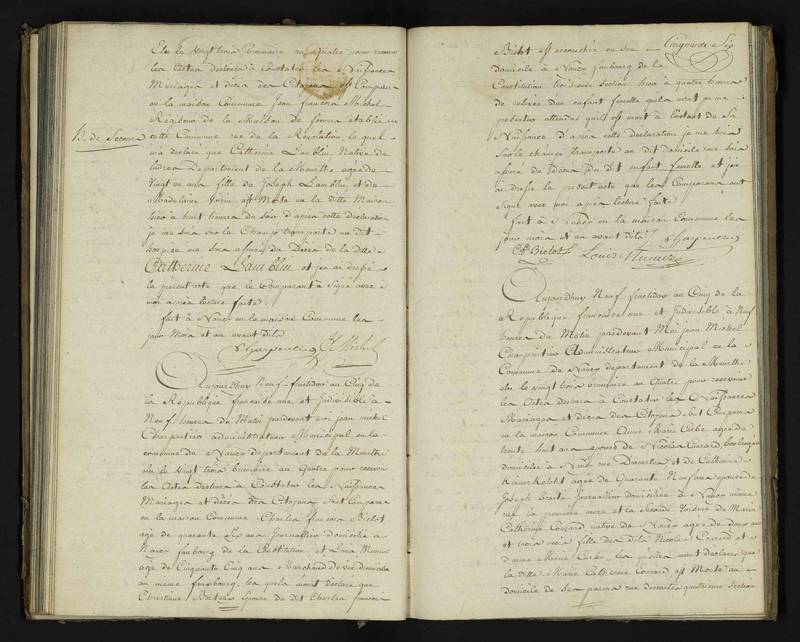 Elu le vingt trois Brumaire an quatre pour recevoir
les actes destinés à Constater les Naissances
Mariages et décès des Citoyens est Comparu
en la maison Commune Jean francois Michel
Régisseur de la Maison de Secours établie en
B. de Secours
cette Commune rue de la Révolution, lequel
m'a déclaré que Catherine Lamblin Native de
Ludres Département de la Meurthe agée de
Vingt ans fille de Joseph Lamblin, et de
Madelaine est Morte en la ditte Maison
hier à huit heures du Soir d'apres cette declaration
je me suis sur le Champ transporté au dit
hospice me suis assuré du Décès de la ditte
Catherine Lamblin et j'ai dressé
le present acte que le Comparant a Signé avec
moi après lecture faite.
fait à Nancy en la maison Commune les
jour Mois et an avant dits
Charpentier Michel
Aujourd'huy Neuf fructidor au Cinq de
la République francaise une et Indivisible à
Neuf heures du Matin pardevant Moi jean michel
Charpentier administrateur Municipal en la
commune de Nancy departement de la Meurthe
élu le vingt trois brumaire an Quatre pour recevoir
les Actes destinés à Constater les Naissances
Mariages et décès des Citoyens Sont Comparus
en la maison Commune Charles francois Bielot
agé de quarante Six ans Journallier domicilié à
Nancy faubourg de la Constitution, et Louis
agé de Cinquante Cinq ans Marchand de vin domicilié
au meme faubourg, lesquels m'ont déclaré que
Christine Epouse du dit Charles francois
Bielot est accouchée en son
domicile à Nancy faubourg de la
Constitution troisieme Section hier à quatre heures
de relevée d'un enfant femelle quils n'ont pu me
présenter attendu quil est mort à l'instant de Sa
Naissance d'apres cette déclaration je me suis
Sur le champ transporté au dit domicile me suis
assuré du Décès du dit enfant femelle et j'ai
dressé le present acte que les Comparans ont
Signé avec moi après lecture faite
fait à Nancy en la maison Commune les
jour mois et an avant dits Charpentier
Ch. Bielot Louis
Aujourd'huy Neuf fructidor au Cinq de la
République francaise une et Indivisible à Neuf
heures du Matin pardevant Moi jean Michel
Charpentier Administrateur Municipal en la
Commune de Nancy département de la Meurthe
elu le vingt trois brumaire an Quatre pour recevoir
les Actes destinés à Constater les Naissances
Mariages et décès des Citoyens Sont Comparus
en la maison Commune Anne Marie Carbe agée de
trente huit ans épouse de Nicolas Conrard boulanger
domiciliée à Nancy rue et Catherine
agée de Quarante Neuf ans épouse de
Joseph Journallier domiciliée à Nancy meme
rue la premiere mere et la Seconde Voisine de Marie
Catherine Conrard native de Nancy agée de deux ans
et trois mois fille des dits Nicolas Conrard et
d'anne Marie Carbe, les quelles m'ont déclaré que
la ditte Marie Catherine Conrard est Morte au
domicile de Ses parens rue quatrieme Section